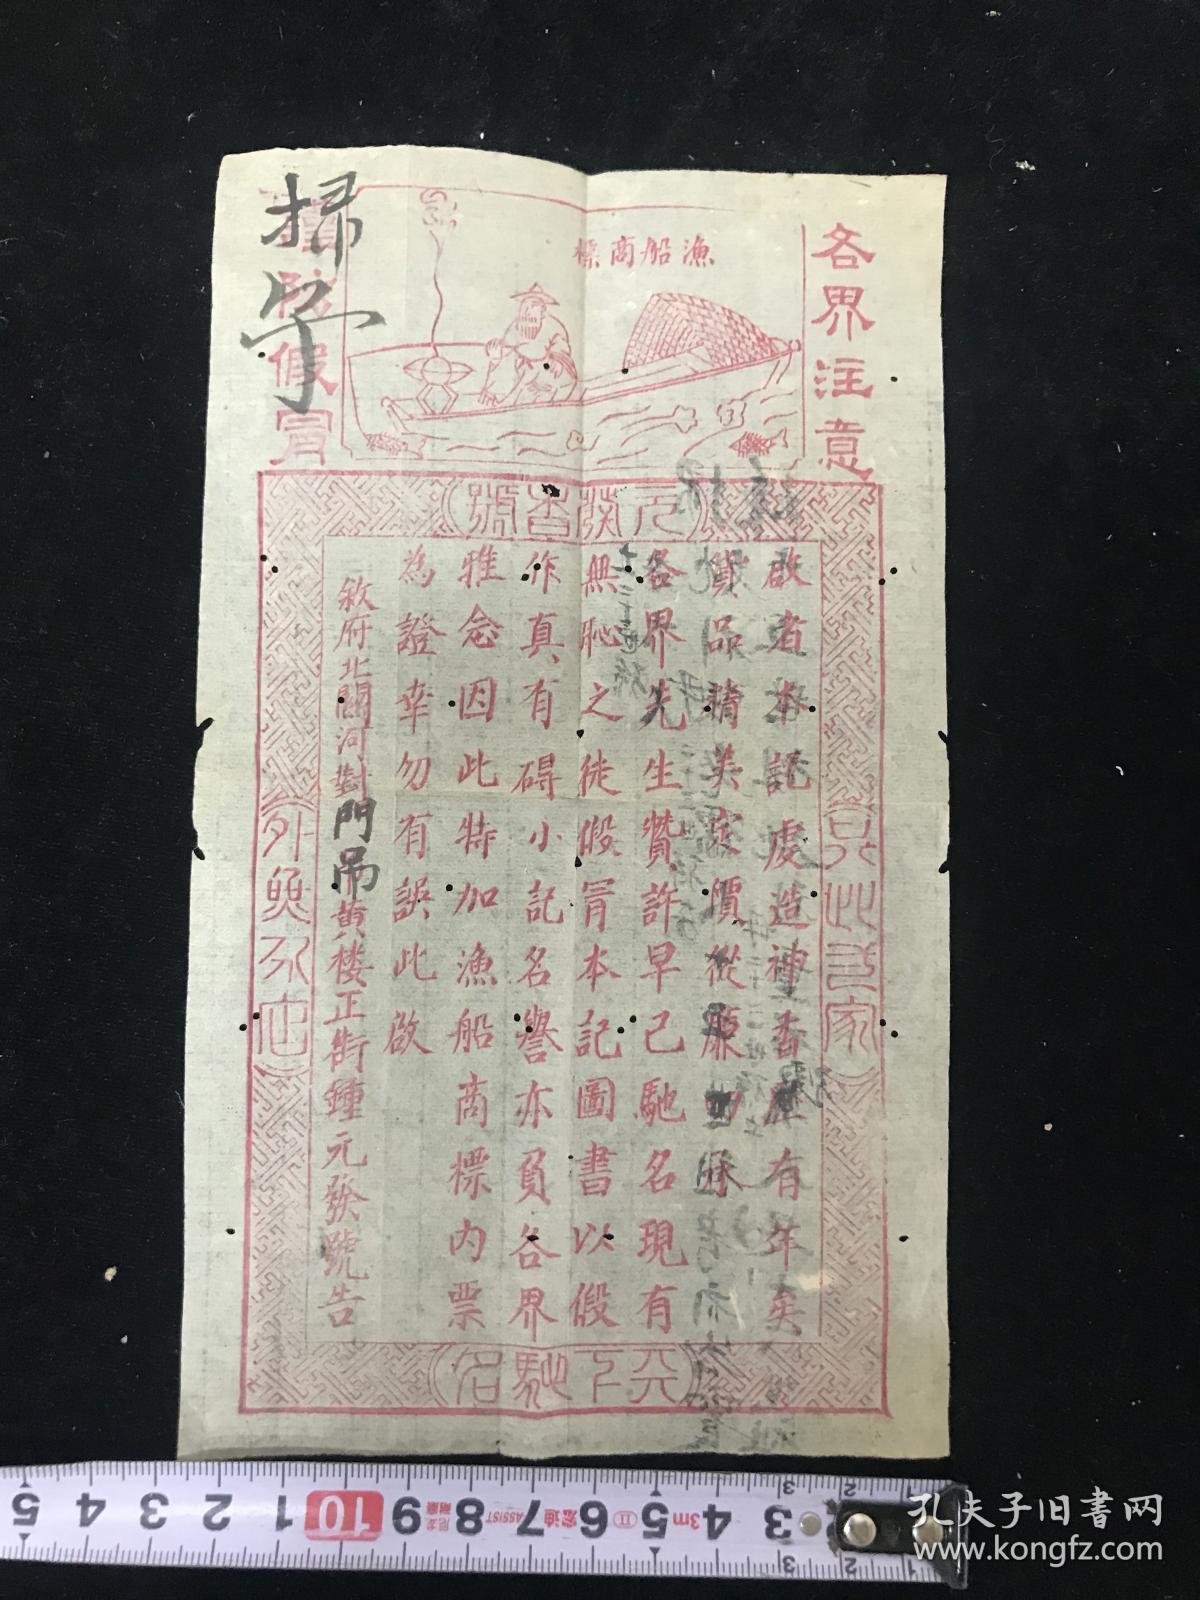 各界注意
漁船商標
防假冒
掃
香號
啟者本記虔造神香歷有年矣
貨品精美定價從廉
各界先生贊許早已馳名現有
無恥之徒假冒本記圖書以假
作真有碍小記名譽亦負各界
雅念因此特加漁船商標內票
為證幸勿有誤此啟
敘府北關河對門吊黃楼正街鍾元發號告
只此一家
外無分
天下馳名
孔夫子旧書网
www.kongfz.com
5 4 3 2 1 10 9 8 7 6 5 4 3
3m
ASSIST
宏迪